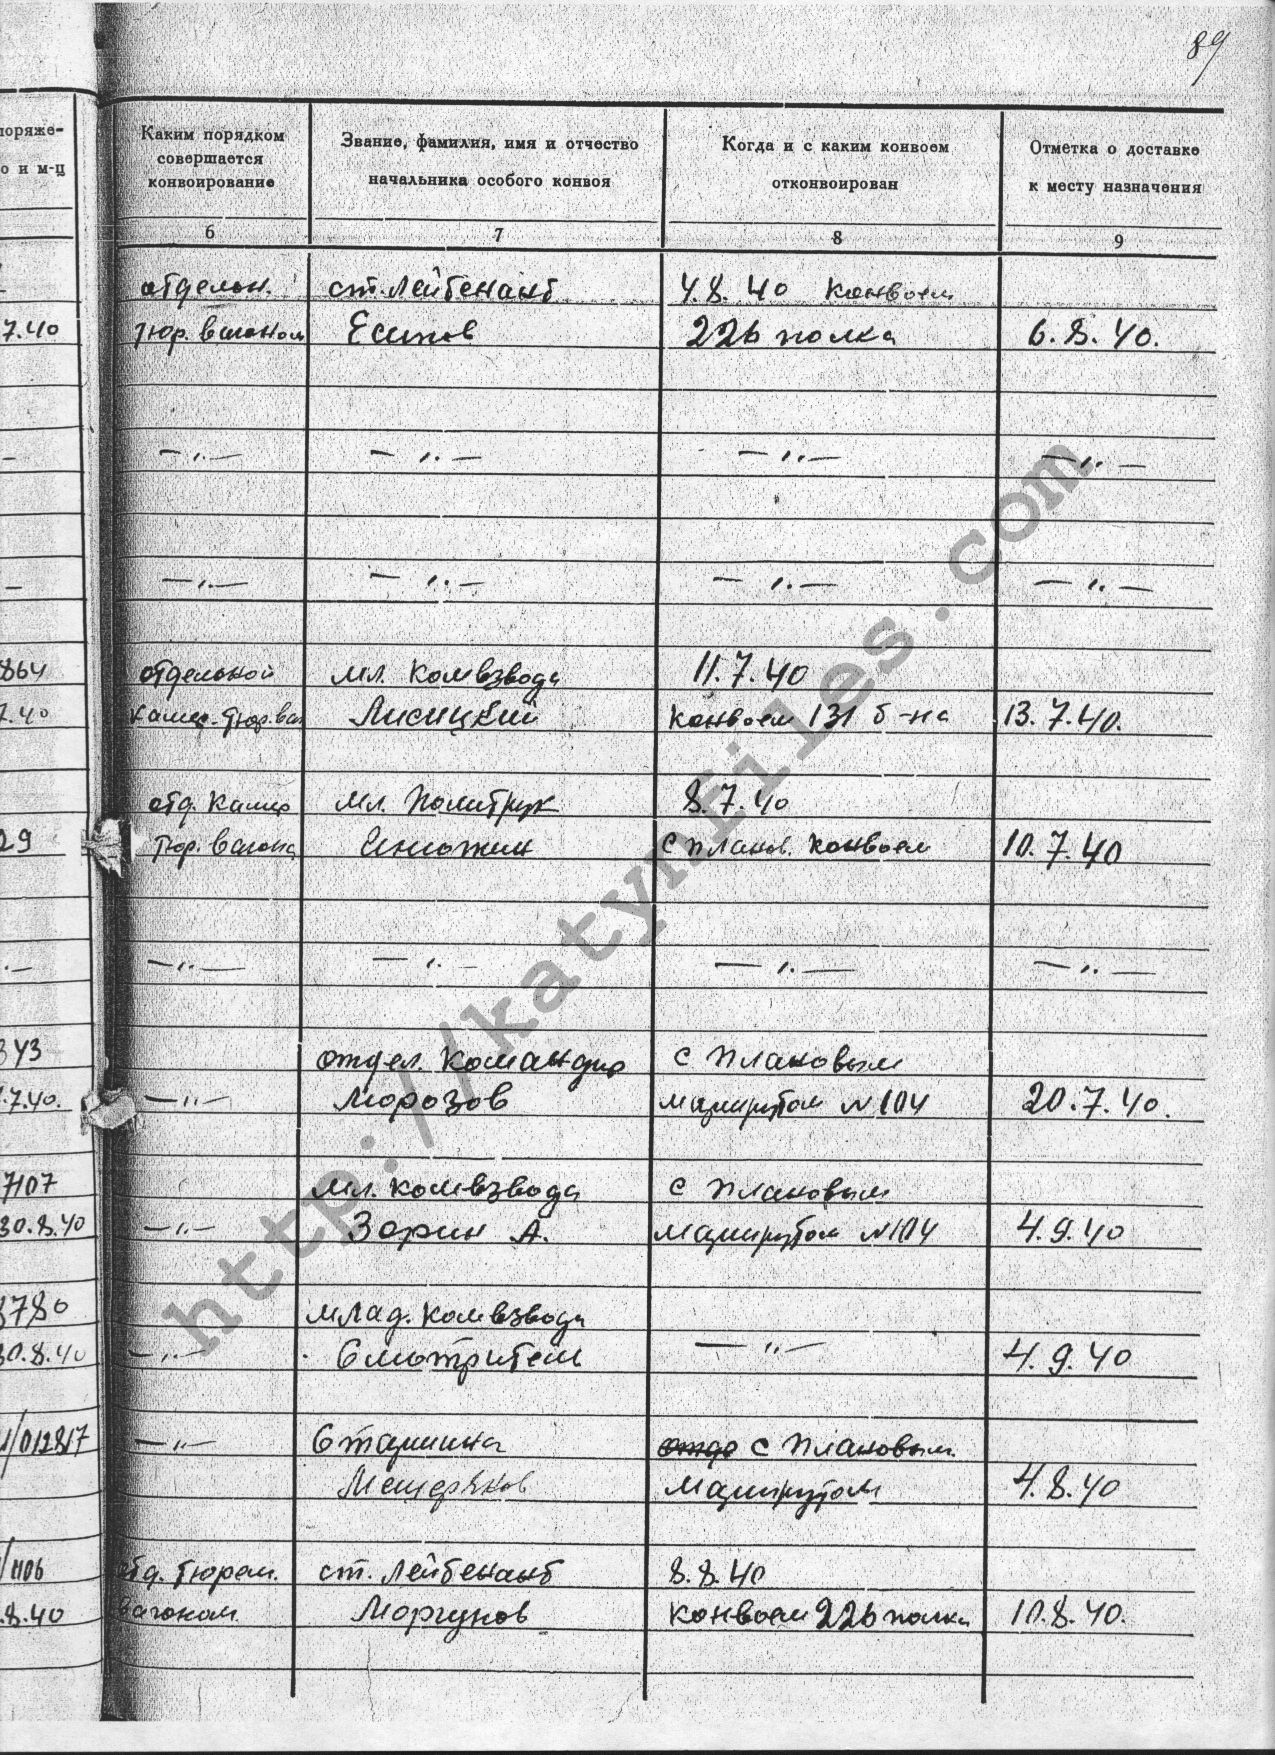 89
поряже-
о и м-ц
Каким порядком
совершается
конвоирование
Звание, фамилия, имя и отчество
начальника особого конвоя
Когда и с каким конвоем
отконвоирован
Отметка о доставке
к месту назначения
6 7 8 9
отдельн. ст. Лейтенант 4.8.40 конвоем
7.40 тюр. вагоном Есипов 226 полка 6.8.40.
— „ — — „ — — „ — — „ —
— — „ — — „ — — „ — — „ —
864 отдельной мл. Комвзвода 11.7.40
7.40 камер. тюр. ваг Лисицкий конвоем 131 б-на 13.7.40.
отд. камер мл. Политрук 8.7.40
29 тюр. вагона с планов. конвоем 10.7.40
— — „ — — „ — — „ — — „ —
343 отдел. командир с плановым
.7.40. — „ — Морозов маршрутом N 104 20.7.40.
7107 мл. комвзвода с плановым
30.8.40 — „ — Зорин А. маршрутом N 104 4.9.40
8780 млад. комвзвода
30.8.40 — „ — Смотритель — „ — 4.9.40
/012817 — „ — Старшина отдо с плановым
Мещеряков маршрутом 4.8.40
/1106 отд. тюрем. ст. Лейтенант 8.8.40
.8.40 вагоном Моргунов конвоем 226 полка 10.8.40.
http://katynfiles.com